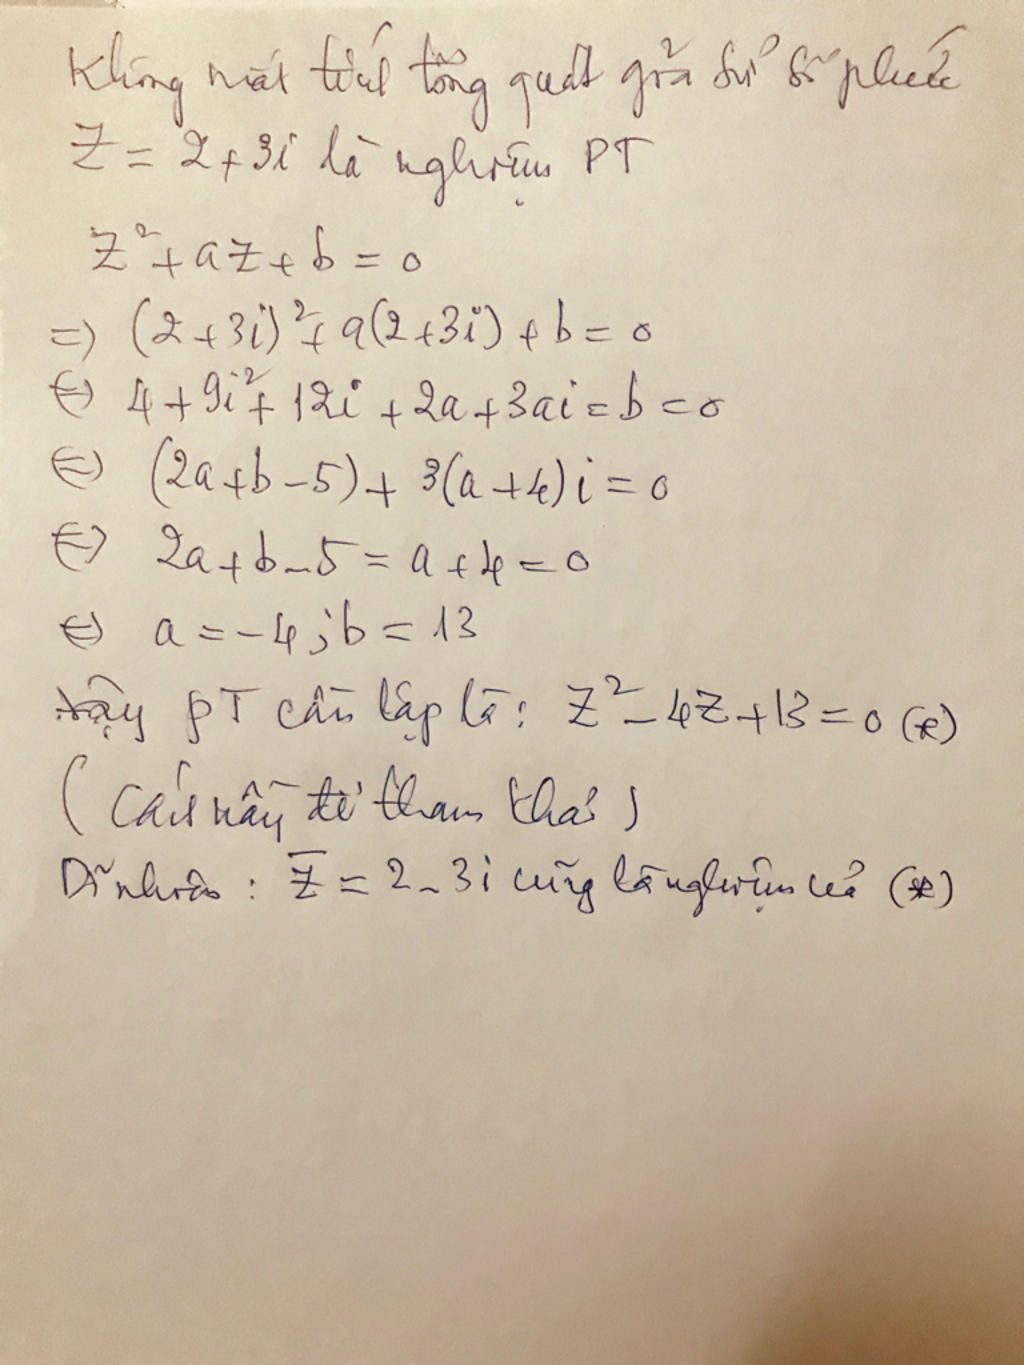 Không mất tính tổng quát giả sử số phức
Z = 2+3i là nghiệm PT
Z²+aZ+b=0
=> (2+3i)²+a(2+3i)+b=0
<=> 4+9i²+12i+2a+3ai=b=0
<=> (2a+b-5)+3(a+4)i=0
<=> 2a+b-5=a+4=0
<=> a=-4;b=13
Vậy PT cần lập là: Z²-4Z+13=0 (*)
(Cách nầy để tham khảo)
Dĩ nhiên: Z̅=2-3i cũng là nghiệm của (*)